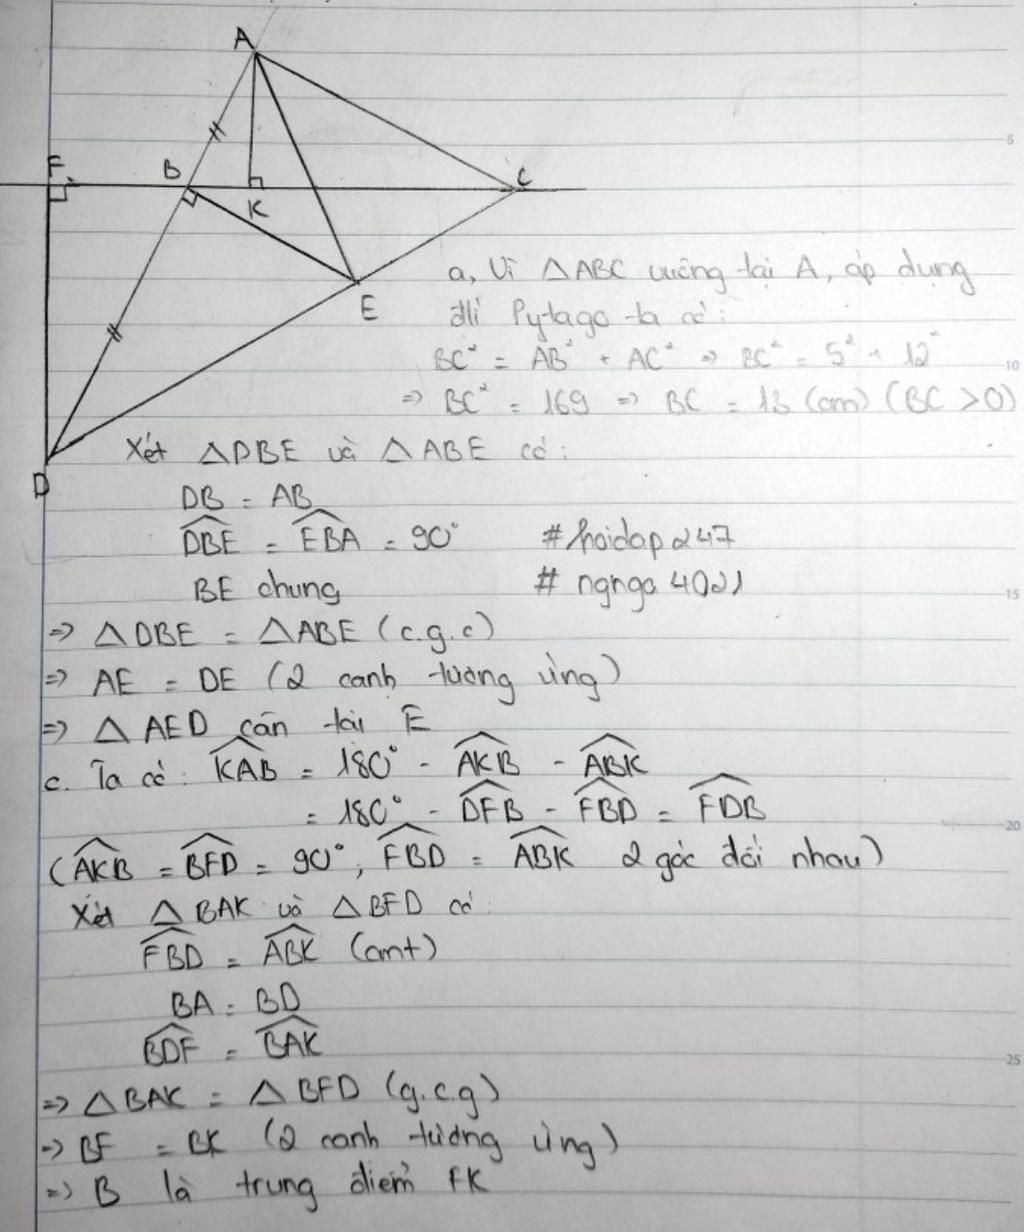 A
F
B
K
C
E
D
a, Vì △ABC vuông tại A, áp dụng
đlí Pytago ta có:
BC² = AB² + AC² ⇒ BC² = 5² + 12²
⇒ BC² = 169 ⇒ BC = 13 (cm) (BC > 0)
Xét △DBE và △ABE có:
DB = AB
\widehat{DBE} = \widehat{EBA} = 90°
#hoidap247
BE chung
# ngnga4021
⇒ △DBE = △ABE (c.g.c)
⇒ AE = DE (2 cạnh tương ứng)
⇒ △AED cân tại E
c. Ta có: \widehat{KAB} = 180° - \widehat{AKB} - \widehat{ABK}
= 180° - \widehat{DFB} - \widehat{FBD} = \widehat{FDB}
(\widehat{AKB} = \widehat{BFD} = 90°, \widehat{FBD} = \widehat{ABK} 2 góc đối nhau)
Xét △BAK và △BFD có:
\widehat{FBD} = \widehat{ABK} (cmt)
BA = BD
\widehat{BDF} = \widehat{BAK}
⇒ △BAK = △BFD (g.c.g)
⇒ BF = BK (2 cạnh tương ứng)
⇒ B là trung điểm FK
5
10
15
20
25